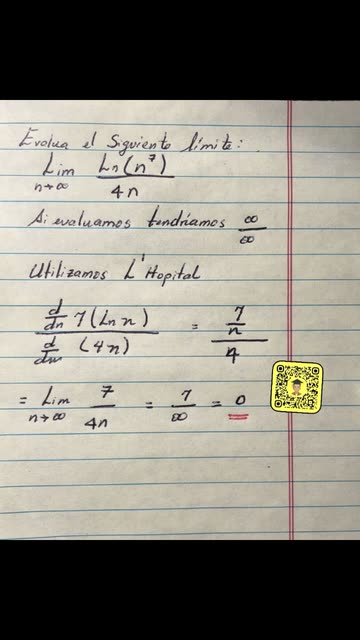 Evalua el Siguiente límite:
Lim n→∞ Ln(n⁷) / 4n
Si evaluamos tendríamos ∞/∞
Utilizamos L'Hopital
d/dn 7(Ln n) / d/dn (4n) = 7/n / 4
= Lim n→∞ 7/4n = 7/∞ = 0